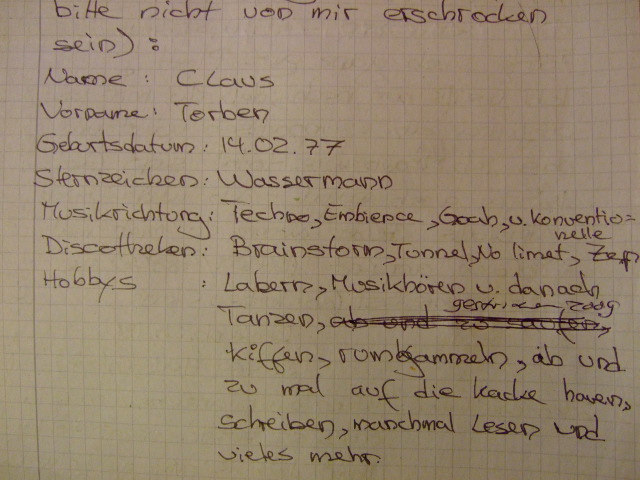 bitte nicht von mir erschrocken
sein):
Name: Claus
Vorname: Torben
Geburtsdatum: 14.02.77
Sternzeichen: Wassermann
Musikrichtung: Techno, Embience, Goah, u. konventio=
nelle
Discotheken: Brainstorm, Tunnel, No limet,
Hobbys : Labern, Musikhören u. danach
Tanzen, ab und zu saufen,
kiffen, rumgammeln, ab und
zu mal auf die kacke hauen,
schreiben, manchmal Lesen und
vieles mehr.